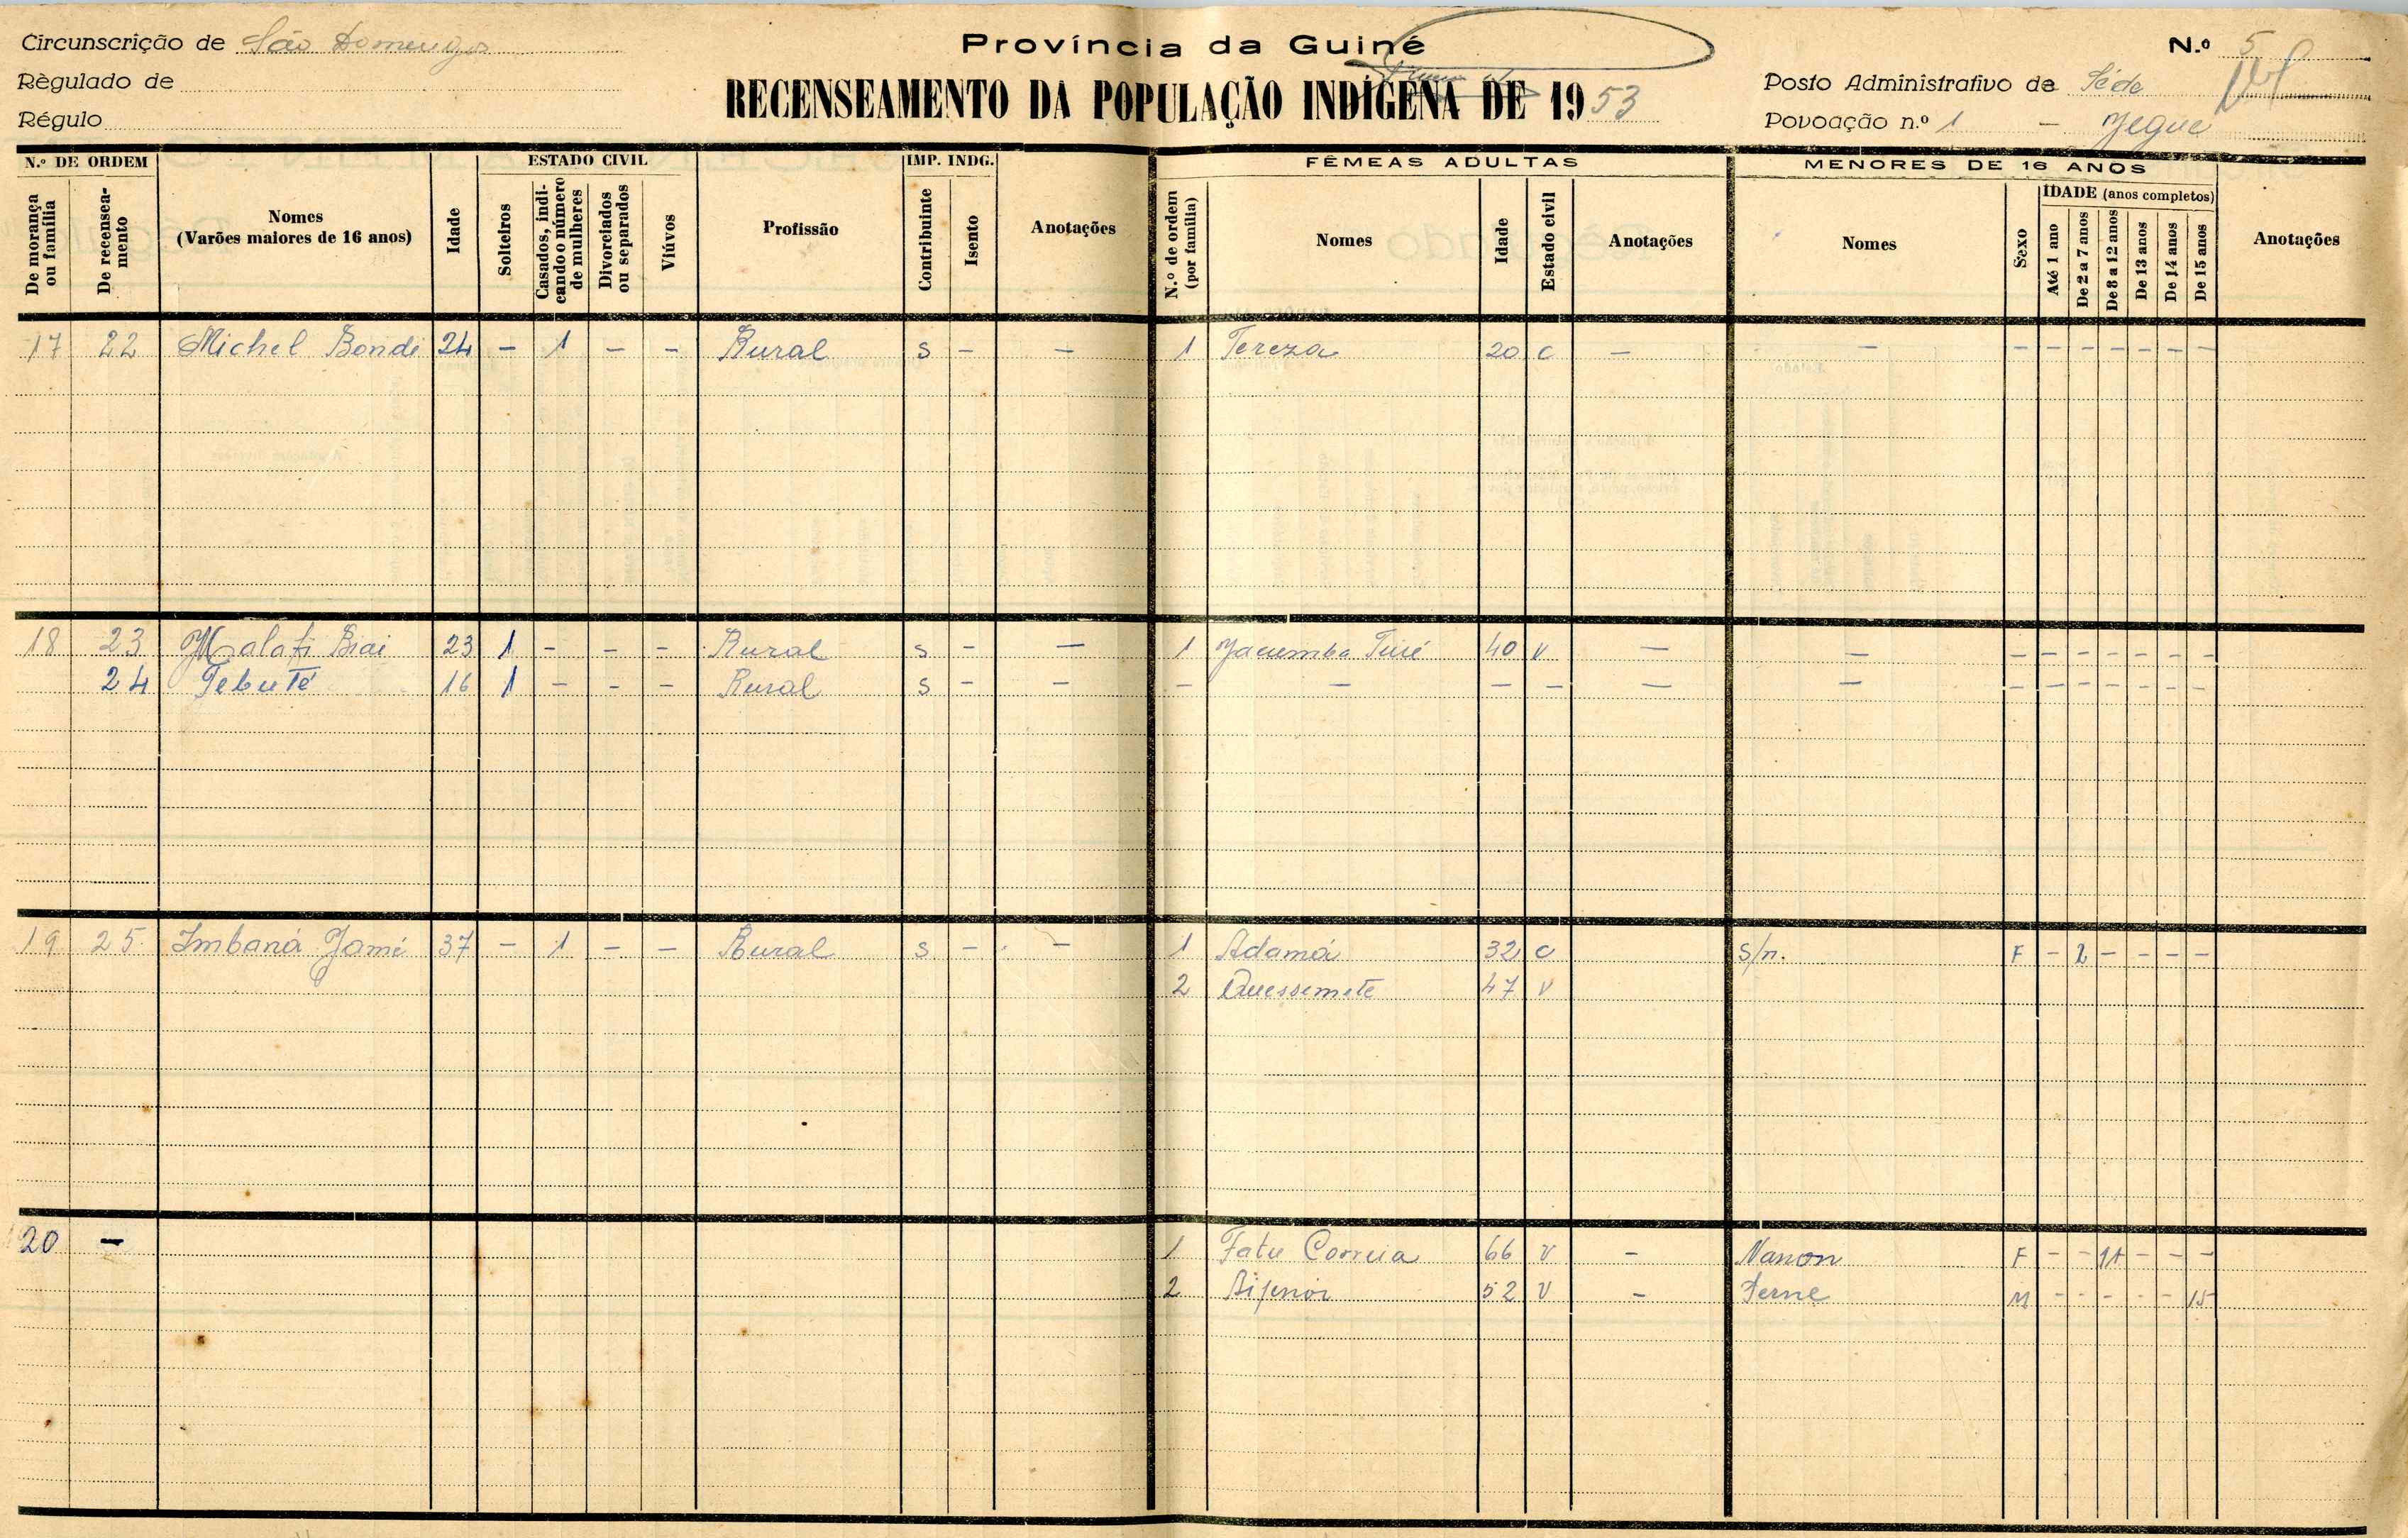 Circunscrição de São Domingos
Règulado de
Régulo
Província da Guiné
RECENSEAMENTO DA POPULAÇÃO INDÍGENA DE 1953
N.º 5
Posto Administrativo de Séde
Povoação n.º 1 - Jegue
N.º DE ORDEM
De morança ou família
De recenseamento
Nomes
(Varões maiores de 16 anos)
Idade
ESTADO CIVIL
Solteiros
Casados, indicando o número de mulheres
Divorciados ou separados
Viúvos
Profissão
IMP. INDG.
Contribuinte
Isento
Anotações
FÊMEAS ADULTAS
N.º de ordem (por família)
Nomes
Idade
Estado civil
Anotações
MENORES DE 16 ANOS
Nomes
Sexo
IDADE (anos completos)
Até 1 ano
De 2 a 7 anos
De 8 a 12 anos
De 13 anos
De 14 anos
De 15 anos
Anotações
17 22 Michel Bondi 24 - 1 - - Rural s - - 1 Tereza 20 c - - - - - - - - -
18 23 Malafi Biai 23 1 - - - Rural s - - 1 Jacumba Turé 40 v - - - - - - - - -
24 Tebuté 16 1 - - - Rural s - - - - - - - - - - - - - - -
19 25 Imbaná Jomé 37 - 1 - - Rural s - - 1 Adamá 32 c s/n. F - 2 - - - -
2 Quessemete 47 v
20 - 1 Fatu Correia 66 v - Nanon F - - 11 - - -
2 52 v - M - - - - - 15